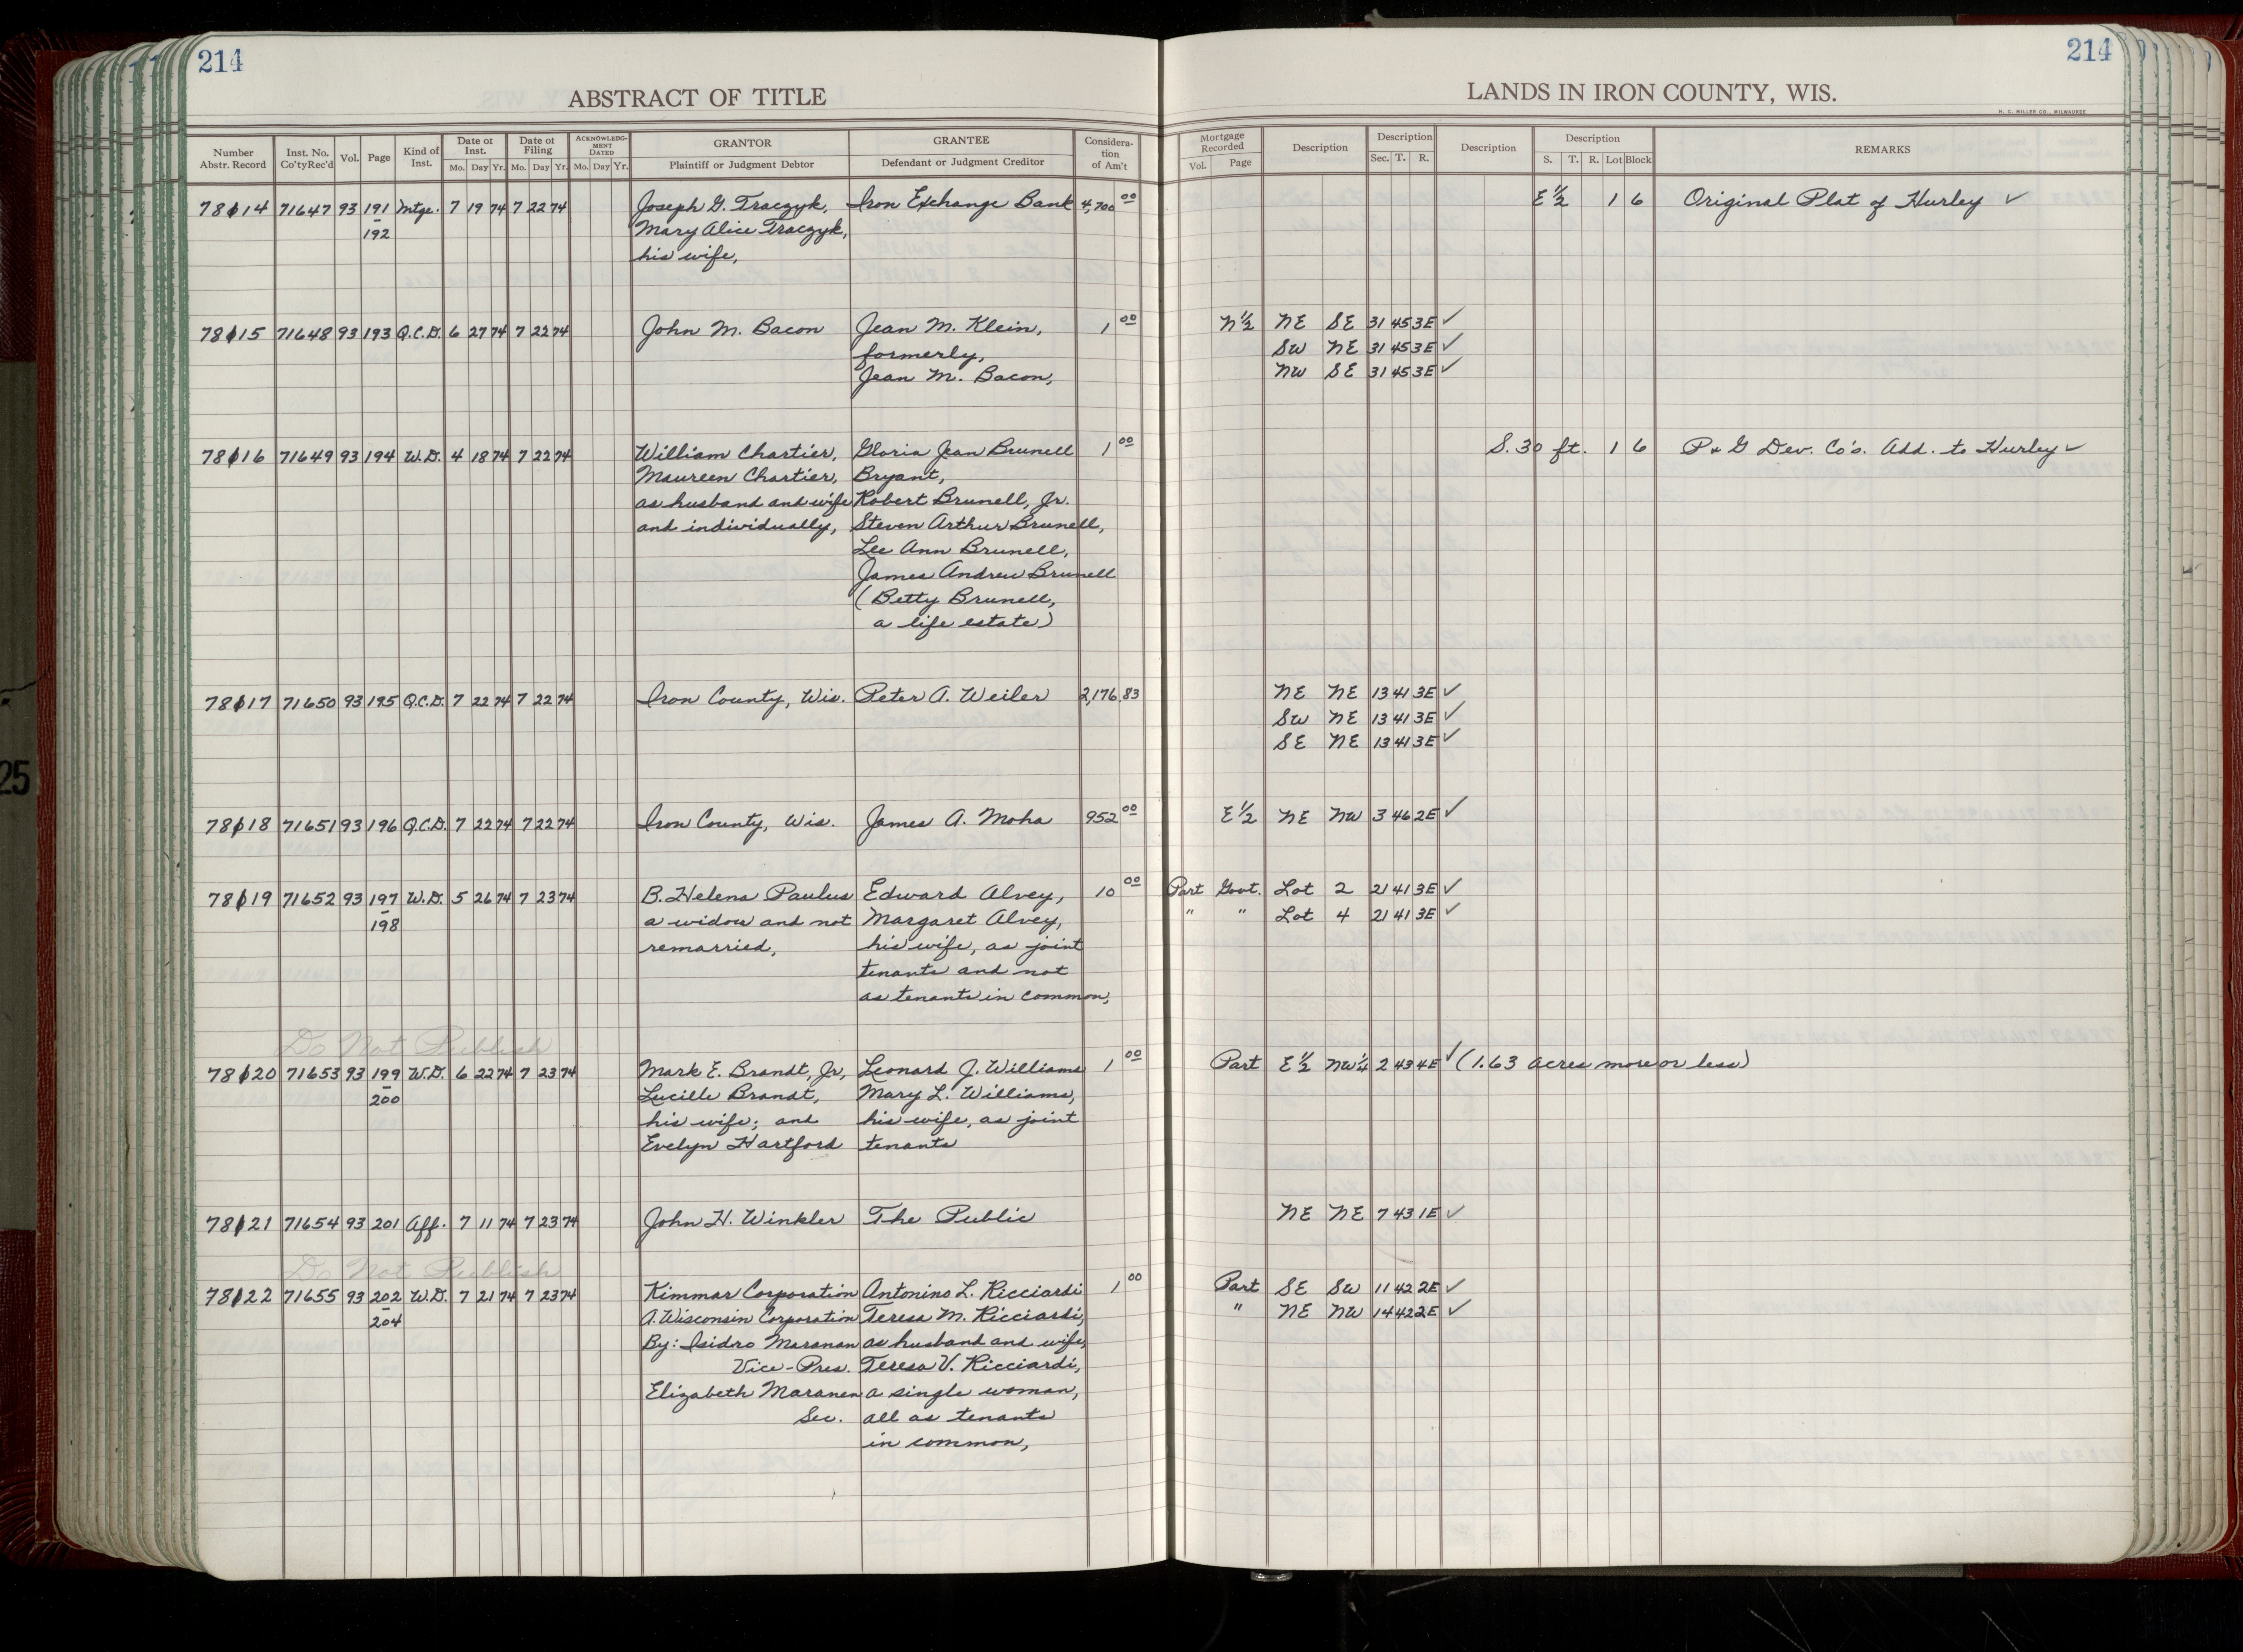 214
ABSTRACT OF TITLE
Number Abstr. Record | Inst. No. Co'ty Rec'd | Vol. | Page | Kind of Inst. | Date of Inst. Mo. Day Yr. | Date of Filing Mo. Day Yr. | ACKNOWLEDGMENT DATED Mo. Day Yr. | GRANTOR Plaintiff or Judgment Debtor | GRANTEE Defendant or Judgment Creditor | Consideration of Am't
214
LANDS IN IRON COUNTY, WIS.
H. C. MILLER CO., MILWAUKEE
Mortgage Recorded Vol. Page | Description | Description Sec. T. R. | Description | Description S. T. R. Lot Block | REMARKS
78114 71647 93 191 Mtge. 7 19 74 7 22 74 Joseph G. Traczyk, Iron Exchange Bank 4,700 00 E 1/2 1 6 Original Plat of Hurley ✓
192 Mary Alice Traczyk,
his wife,
78115 71648 93 193 Q.C.D. 6 27 74 7 22 74 John M. Bacon Jean M. Klein, 1 00 N 1/2 NE SE 31 45 3E ✓
formerly, SW NE 31 45 3E ✓
Jean M. Bacon, NW SE 31 45 3E ✓
78116 71649 93 194 W.D. 4 18 74 7 22 74 William Chartier, Gloria Jean Brunell 1 00 S. 30 ft. 1 6 P & G Dev. Co's. Add. to Hurley ✓
Maureen Chartier, Bryant,
as husband and wife Robert Brunell, Jr.
and individually, Steven Arthur Brunell,
Lee Ann Brunell,
James Andrew Brunell
(Betty Brunell,
a life estate)
78117 71650 93 195 Q.C.D. 7 22 74 7 22 74 Iron County, Wis. Peter A. Weiler 2,176 83 NE NE 13 41 3E ✓
SW NE 13 41 3E ✓
SE NE 13 41 3E ✓
78118 71651 93 196 Q.C.D. 7 22 74 7 22 74 Iron County, Wis. James A. Moha 952 00 E 1/2 NE NW 3 46 2E ✓
78119 71652 93 197 W.D. 5 26 74 7 23 74 B. Helena Paulus Edward Alvey, 10 00 Part Govt. Lot 2 21 41 3E ✓
198 a widow and not Margaret Alvey, " " Lot 4 21 41 3E ✓
remarried, his wife, as joint
tenants and not
as tenants in common,
Do Not Publish
78120 71653 93 199 W.D. 6 22 74 7 23 74 Mark E. Brandt, Jr, Leonard J. Williams 1 00 Part E 1/2 NW 1/4 2 43 4E ✓ (1.63 acres more or less)
200 Lucille Brandt, Mary L. Williams,
his wife; and his wife, as joint
Evelyn Hartford tenants
78121 71654 93 201 Aff. 7 11 74 7 23 74 John H. Winkler The Public NE NE 7 43 1E ✓
Do Not Publish
78122 71655 93 202 W.D. 7 21 74 7 23 74 Kimmar Corporation Antonino L. Ricciardi 1 00 Part SE SW 11 42 2E ✓
204 A. Wisconsin Corporation Teresa M. Ricciardi, " NE NW 14 42 2E ✓
By: Isidro Maranan as husband and wife,
Vice-Pres. Teresa V. Ricciardi,
Elizabeth Maranen a single woman,
Sec. all as tenants
in common,
25